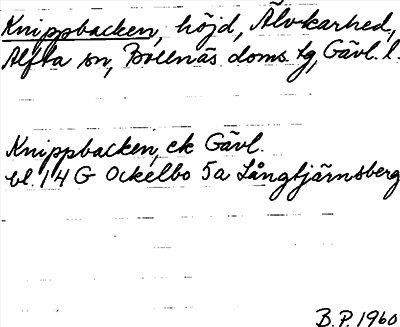 Knippbacken, höjd, Älvkarhed,
Alfta sn, Bollnäs doms.lg, Gävl. l.
Knippbacken, ek Gävl.
bl. 14 G Ockelbo 5a Långtjärnsberg
B.P. 1960